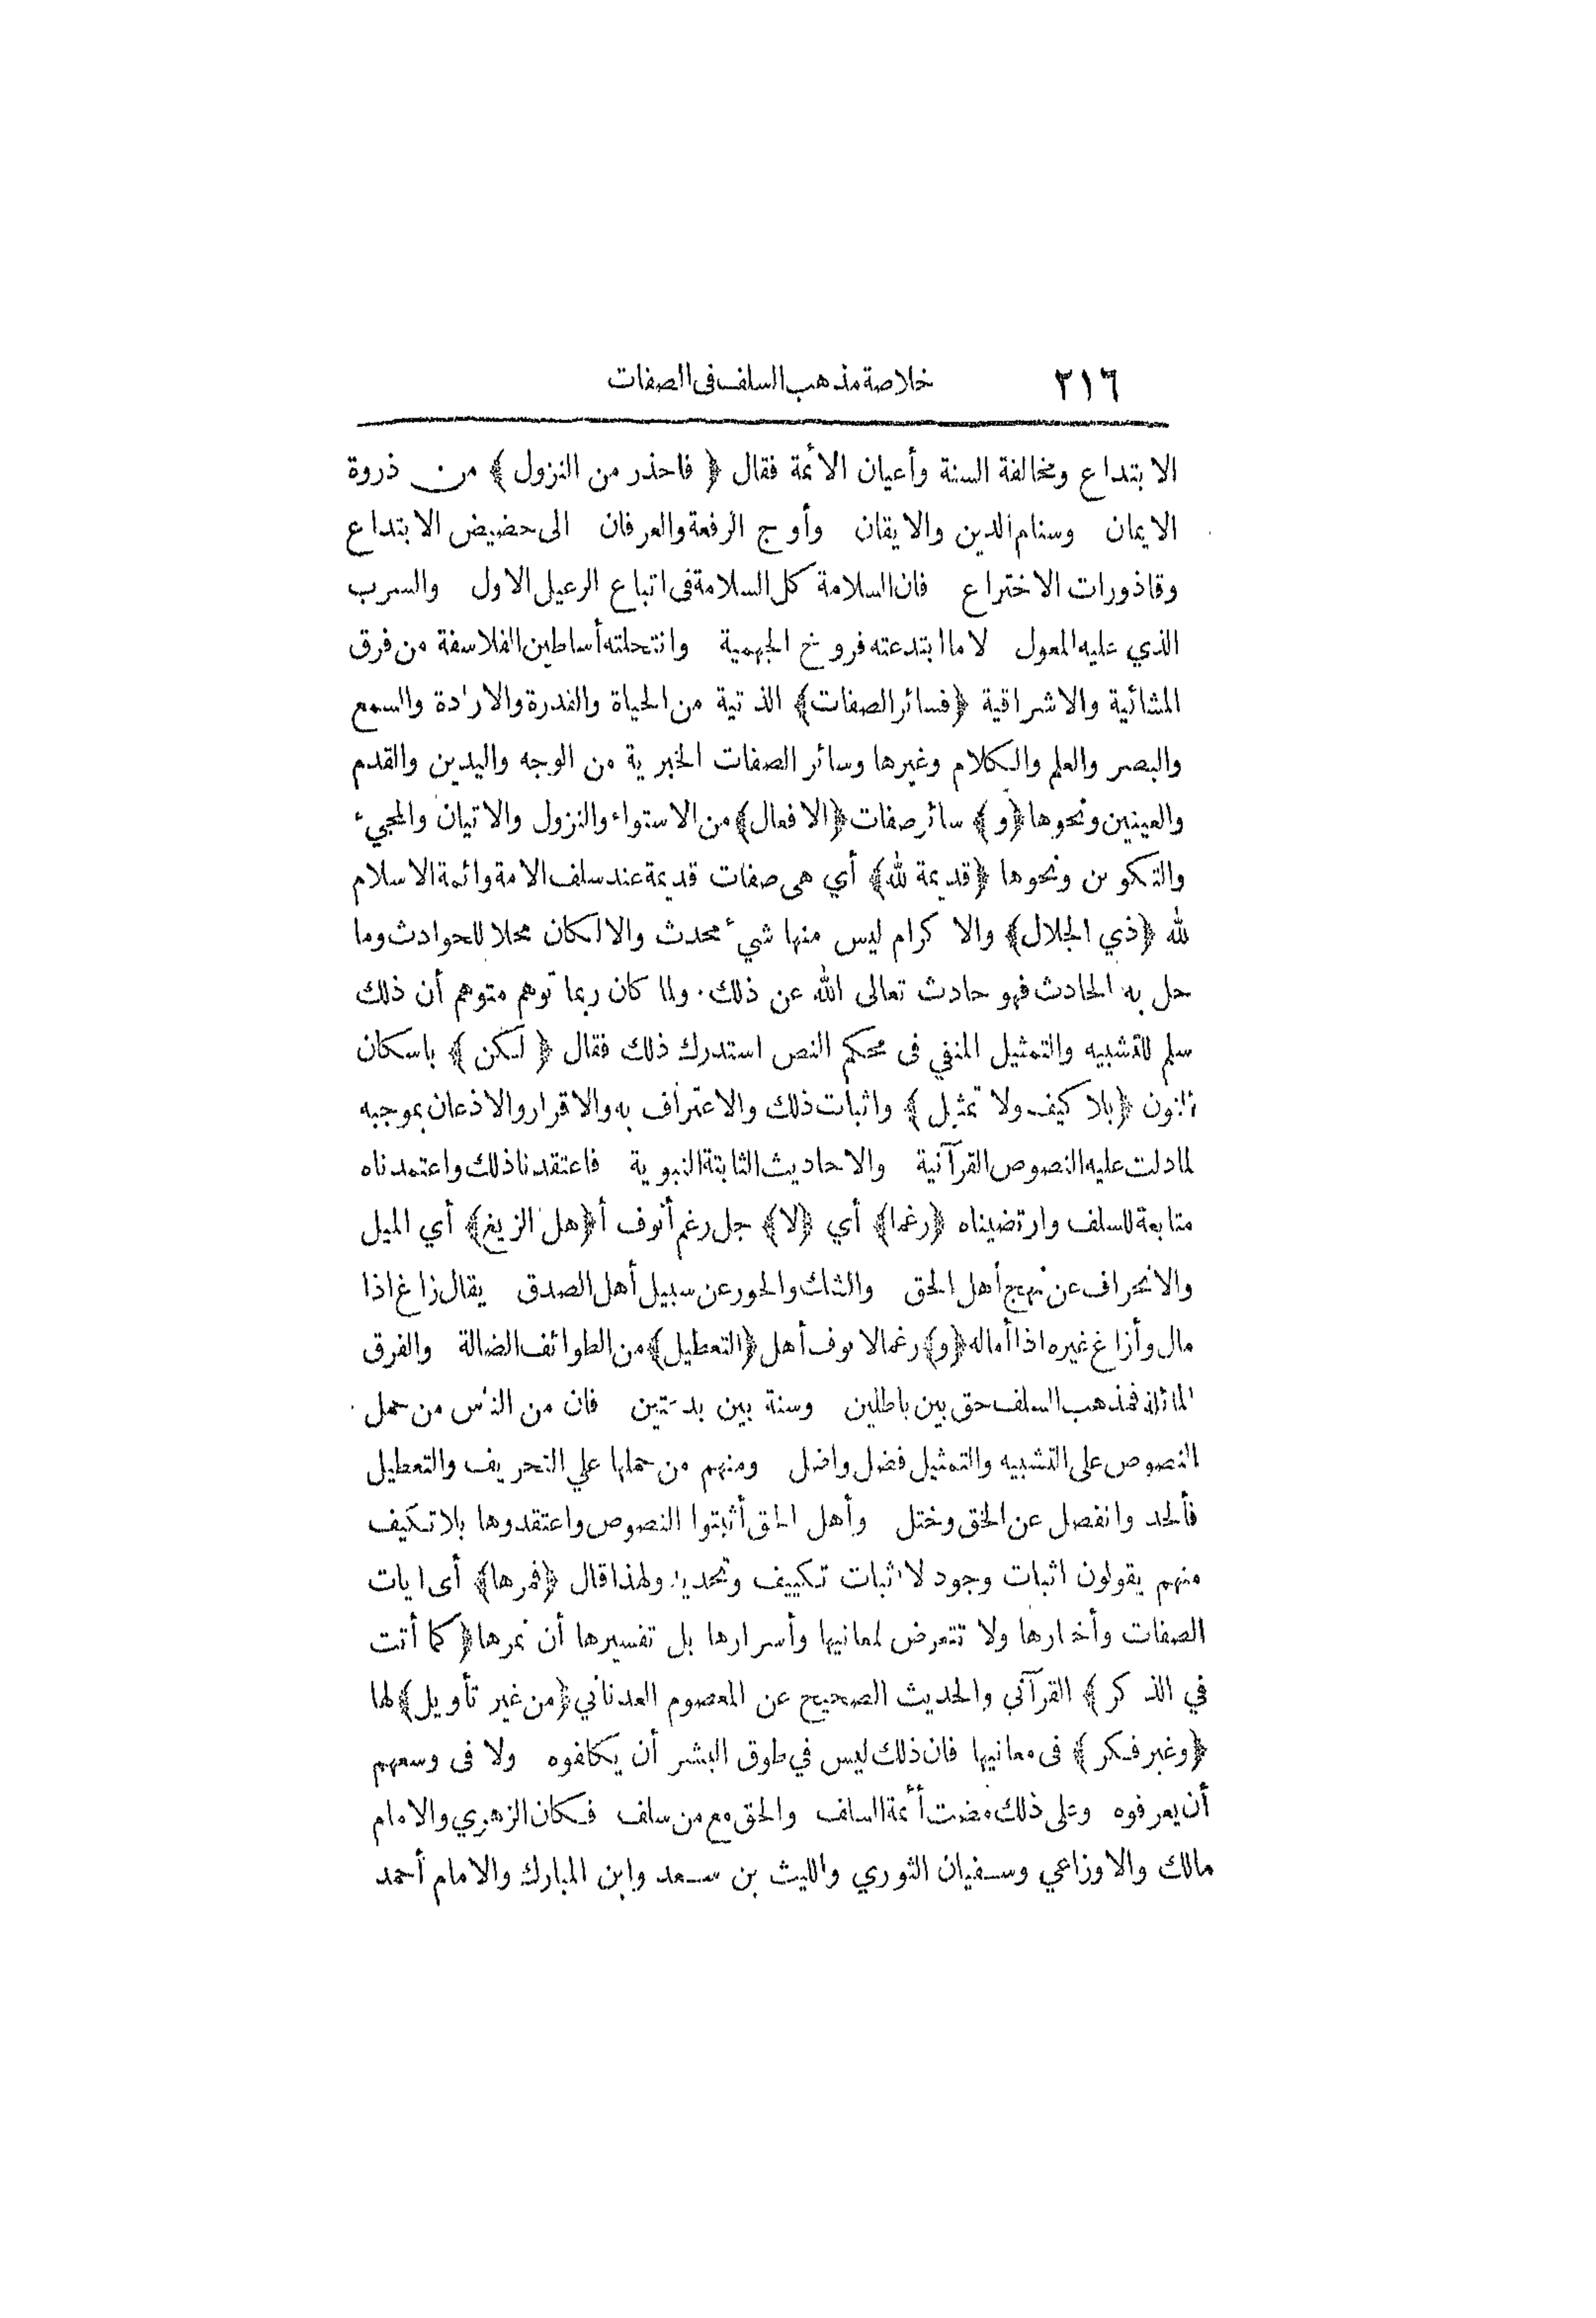 ٢١٦ خلاصة مذهب السلف فى الصفات
الابتداع ومخالفة السنة وأعيان الأئمة فقال ﴿ فاحذر من النزول ﴾ من ذروة
الايمان وسنام الدين والايقان وأوج الرفعة والعرفان الى حضيض الابتداع
وقاذورات الاختراع فان السلامة كل السلامة فى اتباع الرعيل الاول والسرب
الذي عليه المعول لا ما ابتدعته فروخ الجهمية وانتحلته أساطين الفلاسفة من فرق
المشائية والاشراقية ﴿فسائر الصفات﴾ الذتية من الحياة والقدرة والارادة والسمع
والبصر والعلم والكلام وغيرها وسائر الصفات الخبرية من الوجه واليدين والقدم
والعينين ونحوها ﴿و﴾ سائر صفات ﴿الافعال﴾ من الاستواء والنزول والاتيان والمجيء
والتكوين ونحوها ﴿قديمة لله﴾ أي هى صفات قديمة عند سلف الامة وائمة الاسلام
لله ﴿ذي الجلال﴾ والاكرام ليس منها شيء محدث والا لكان محلا للحوادث وما
حل به الحادث فهو حادث تعالى الله عن ذلك. ولما كان ربما توهم متوهم أن ذلك
سلم للتشبيه والتمثيل المنفي فى محكم النص استدرك ذلك فقال ﴿ لكن ﴾ باسكان
النون ﴿بلا كيف ولا تمثيل ﴾ واثبات ذلك والاعتراف به والاقرار والاذعان بموجبه
لما دلت عليه النصوص القرآنية والاحاديث الثابتة النبوية فاعتقدنا ذلك واعتمدناه
متابعة للسلف وارتضيناه ﴿رغما﴾ أي ﴿لا﴾ جل رغم أنوف أ﴿هل الزيغ﴾ أي الميل
والانحراف عن نهج أهل الحق والشك والحور عن سبيل أهل الصدق يقال زاغ اذا
مال وأزاغ غيره اذا أماله ﴿و﴾ رغما لانوف أهل ﴿التعطيل﴾ من الطوائف الضالة والفرق
المائلة فمذهب السلف حق بين باطلين وسنة بين بدعتين فان من الناس من حمل
النصوص على التشبيه والتمثيل فضل واضل ومنهم من حملها علي التحريف والتعطيل
فألحد وانفصل عن الحق وختل وأهل الحق أثبتوا النصوص واعتقدوها بلا تكيف
منهم يقولون اثبات وجود لا اثبات تكييف وتحديد ولهذا قال ﴿فمرها﴾ أى ايات
الصفات وأخبارها ولا تتعرض لمعانيها وأسرارها بل تفسيرها أن نمرها ﴿كما أتت
في الذكر ﴾ القرآنى والحديث الصحيح عن المعصوم العدناني ﴿من غير تأويل﴾ لها
﴿وغير فكر ﴾ فى معانيها فان ذلك ليس في طوق البشر أن يكافوه ولا فى وسعهم
أن يعرفوه وعلى ذلك مضت أئمة السلف والحق مع من سلف فكان الزهري والامام
مالك والاوزاعي وسفيان الثوري والليث بن سعد وابن المبارك والامام أحمد